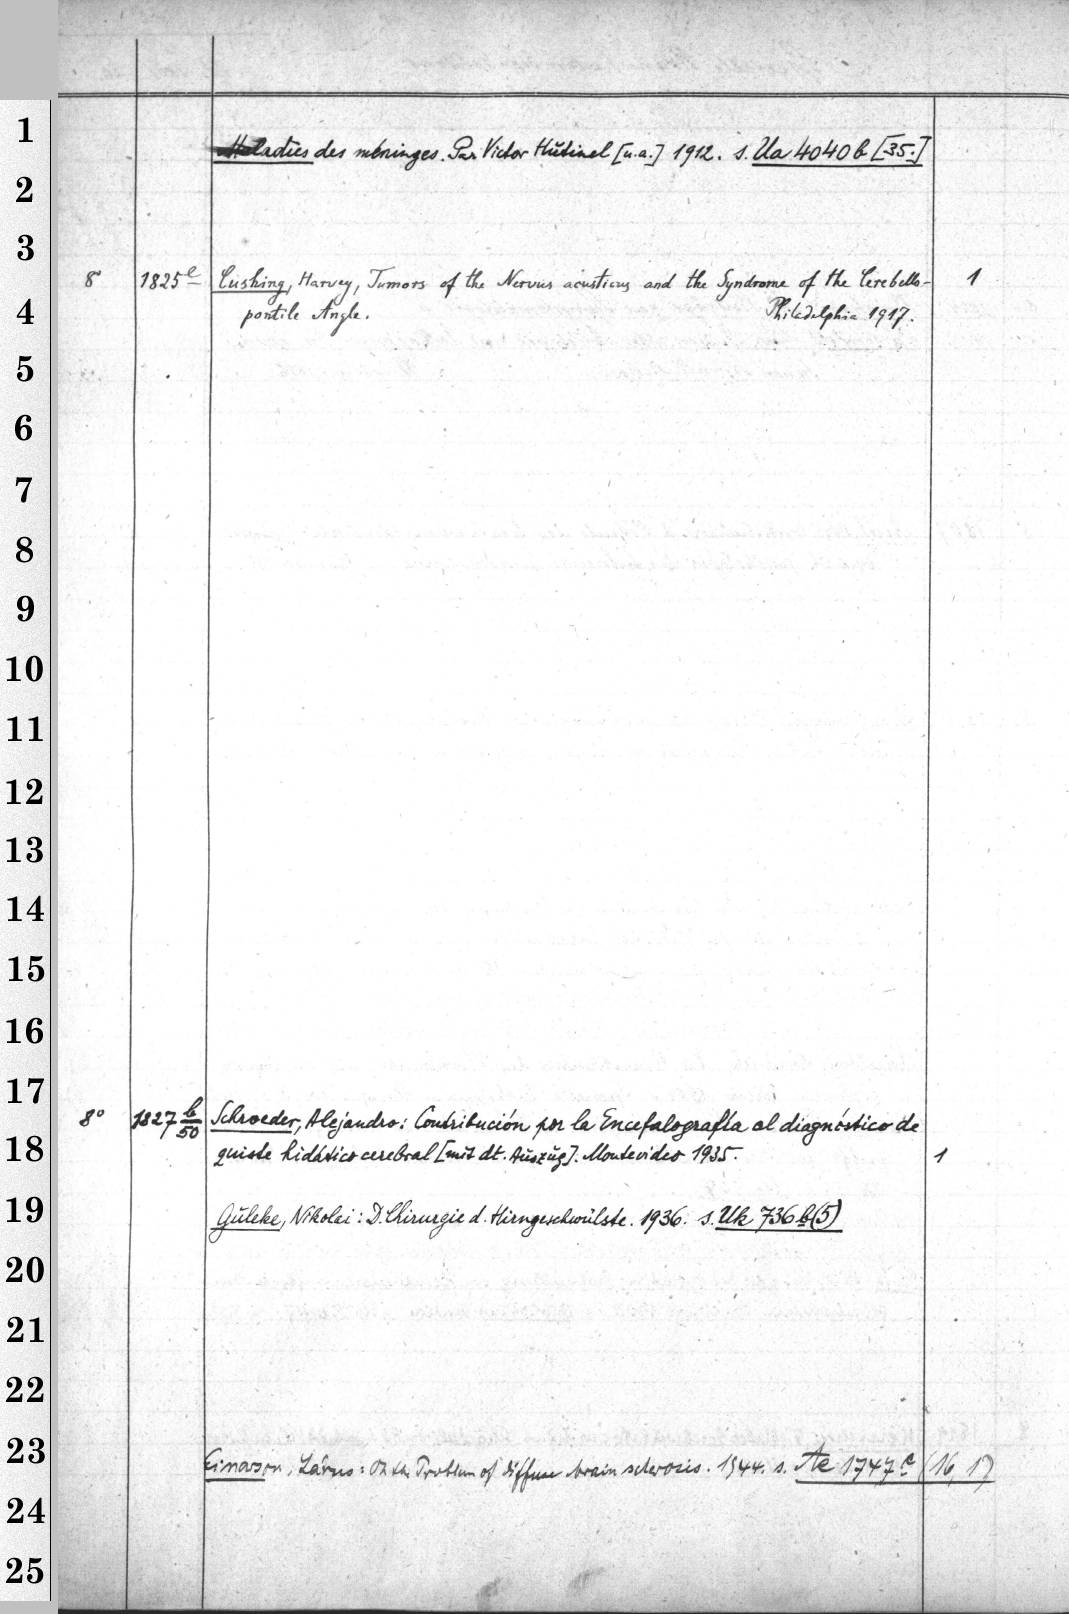 1
Maladies des méninges. Par Victor Hutinel [u.a.] 1912. s. Ua 4040 b [35.]
2
3
8° 1825e Cushing, Harvey, Tumors of the Nervus acusticus and the Syndrome of the Cerebello- 1
4
pontile Angle. Philadelphia 1917.
5
6
7
8
9
10
11
12
13
14
15
16
17
8° 1827 b/50 Schroeder, Alejandro: Contribución por la Encefalografía al diagnóstico de
18
quiste hidático cerebral [mit dt. Auszug]. Montevideo 1935. 1
19
Guleke, Nikolai: D. Chirurgie d. Hirngeschwülste. 1936. s. Uk 736 b(5)
20
21
22
23
Einarson, Lárus: On the Problem of diffuse brain sclerosis. 1944. s. Ae 1747 e (16, 1)
24
25